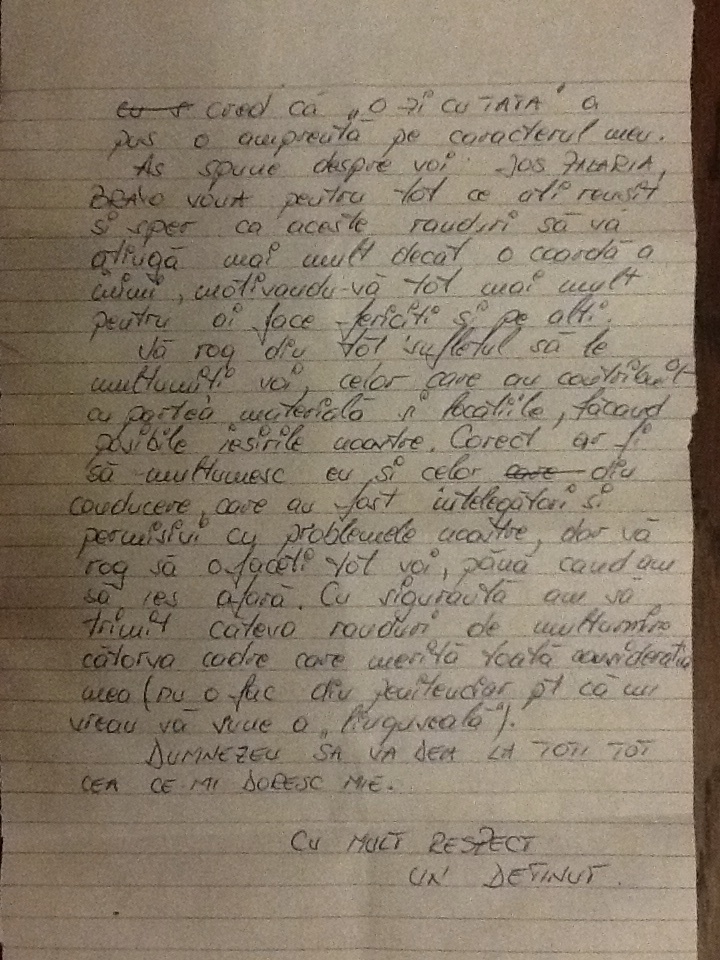 cred că „O zi cu TATA" a
pus o amprentă pe caracterul meu.
As spune despre voi: JOS PALARIA,
BRAVO VOUA pentru tot ce ati reusit
si sper ca aceste randuri să vă
atingă mai mult decât o coardă a
inimi, motivandu-vă tot mai mult
pentru ai face fericiti si pe alti.
Vă rog din tot sufletul să le
multumiti voi, celor care au contribuit
cu partea materială si locatiile, făcand
posibile iesirile noastre. Corect ar fi
să multumesc eu si celor care din
conducere, care au fost intelegători si
permisivi cu problemele noastre, dar vă
rog să o faceti tot voi, până cand am
să ies afară. Cu sigurantă am să
trimit câteva randuri de multumire
câtorva cadre care merită toată consideratia
mea (nu o fac din penitenciar pt că nu
vreau vă sune a „linguseală").
DUMNEZEU SA VA DEA LA TOTI TOT
CEA CE-MI DORESC MIE.
CU MULT RESPECT
UN DETINUT.